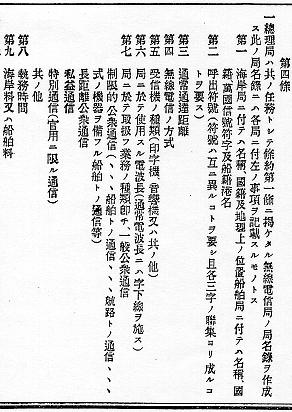 第四條
一總理局ハ其ノ任務トシテ條約第一條ニ揭ケタル無線電信局ノ局名錄ヲ作成
ス此ノ局名錄ニハ各局ニ付左ノ事項ヲ記載スルモノトス
第一 海岸局ニ付テハ名稱、國籍及地理上ノ位置船舶局ニ付テハ名稱、國
籍、萬國信號符字及船籍港名
第二 呼出符號(符號ハ互ニ異ルコトヲ要シ且各三字ノ聯集ヨリ成ルコ
トヲ要ス)
第三 通常通達距離
第四 無線電信ノ方式
第五 受信機ノ種類(印字機、音響機又ハ其ノ他)
第六 局ニ於テ使用スル電波長(通常電波長ニハ字下線ヲ施ス)
第七 局ニ於テ取扱フ業務ノ種類卽チ一般公衆通信
制限的公衆通信(、、、船舶トノ通信、、、航路トノ通信、、、
式ノ機器ヲ備フル船舶トノ通信等)
長距離公衆通信
私益通信
特別通信(官用ニ限ル通信)
其ノ他
第八 執務時間
第九 海岸料又ハ船舶料